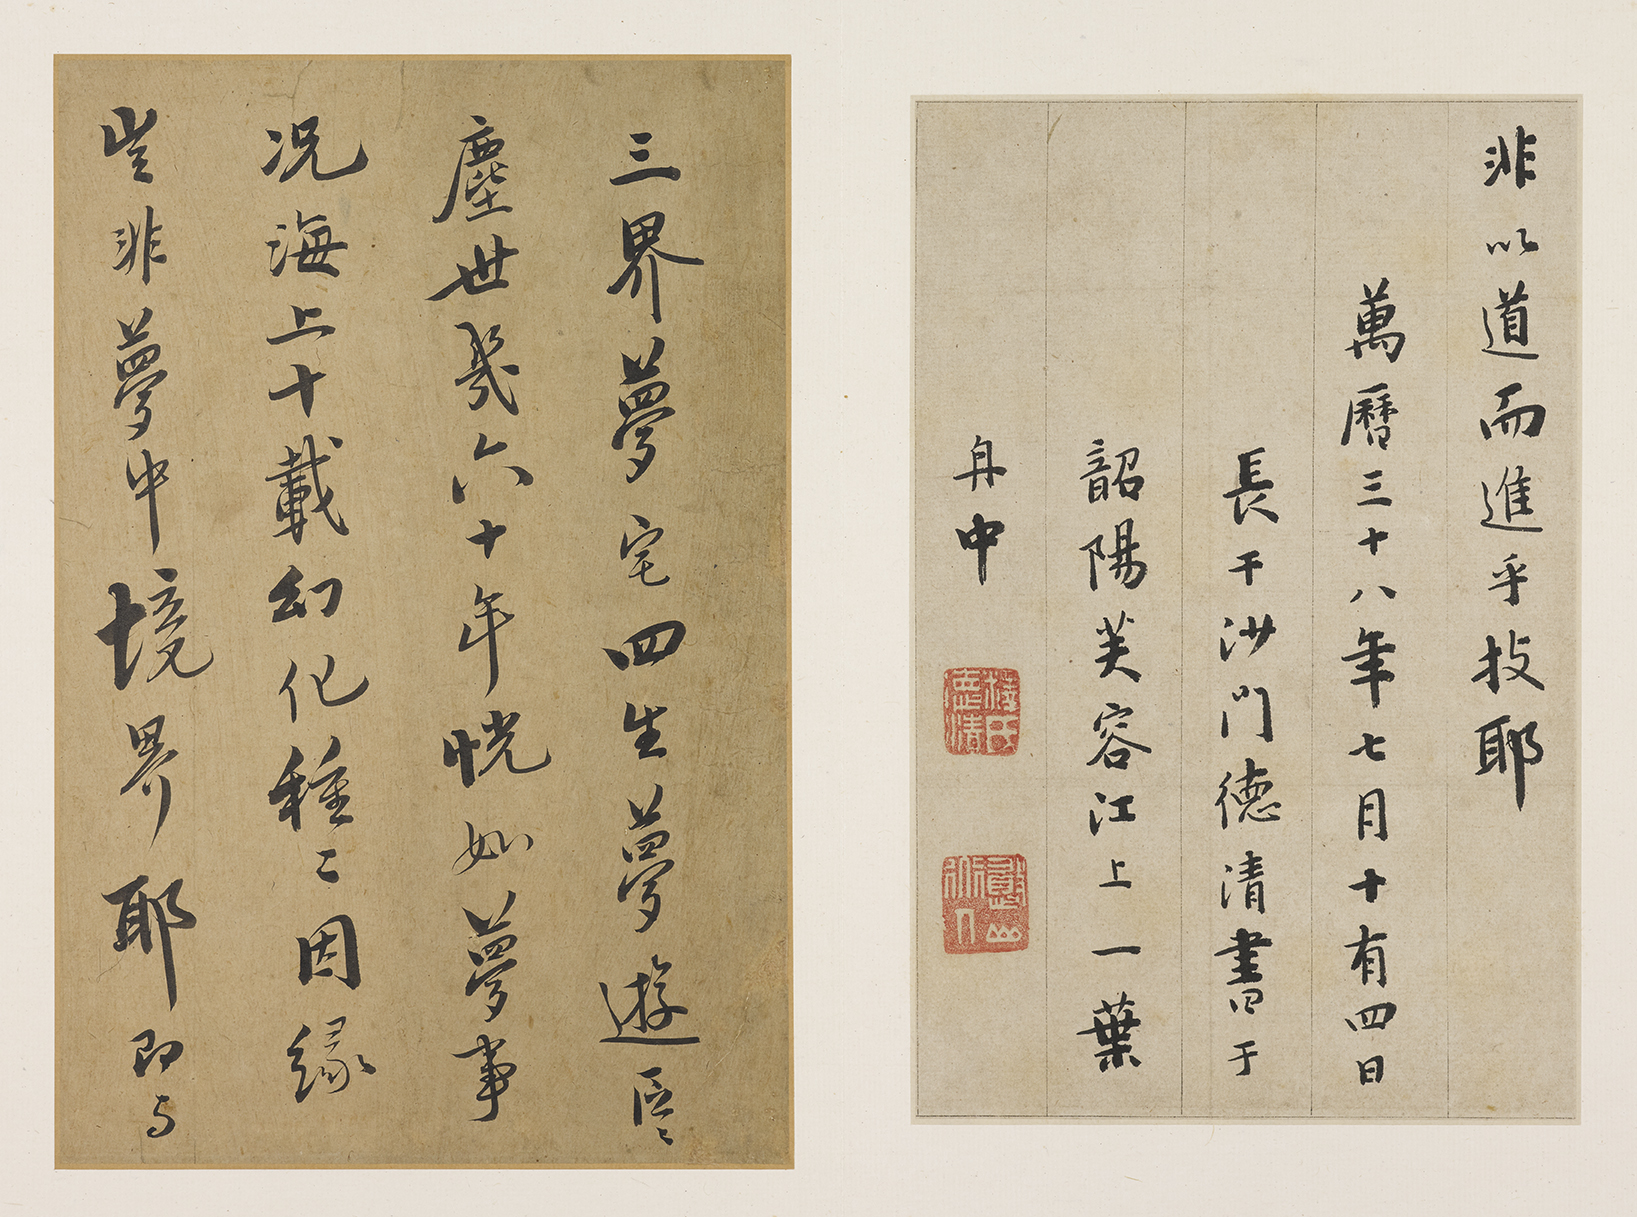 非以道而進乎技耶
萬曆三十八年七月十有四日
長干沙門德清書于
韶陽芙容江上一葉
舟中
三界夢宅四生夢遊區〻
塵世幾六十年恍如夢事
况海上十載幻化種〻因緣
豈非夢中境界耶即与